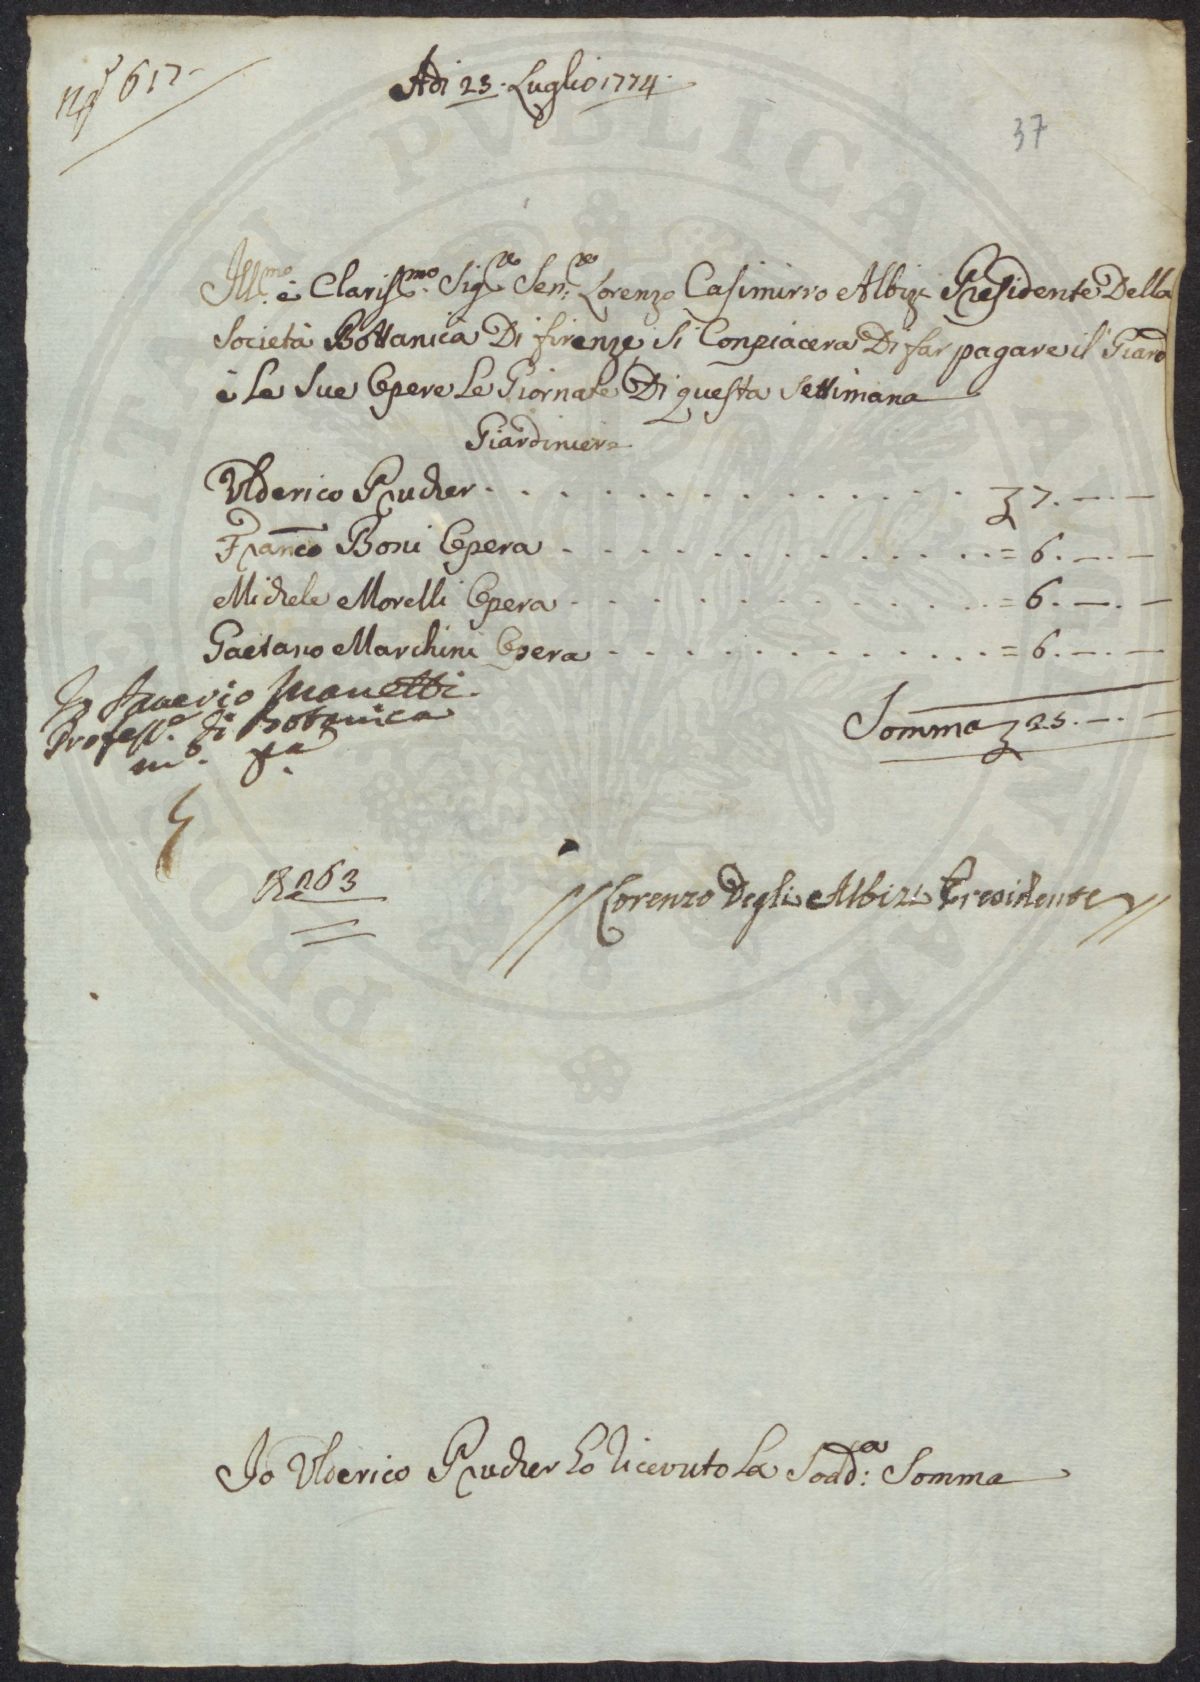 617
Adi 23. Luglio 1774.
37
Ill.mo è Clariss.mo Sig.re Sen.re Lorenzo Casimirro Albizi Presidente Della
Società Bottanica Di firenze, si Conpiacera Di far pagare il Giard
è Le Sue Opere Le Giornate Di questa Settimana
Giardiniere
Ulderico Prucher . . . . . . . . . . . . . 7. — —
Franco Boni Opera . . . . . . . . . . . = 6. — —
Michele Morelli Opera . . . . . . . . . . = 6. — —
Gaetano Marchini Opera . . . . . . . . . . = 6. — —
Io Saverio Manetti
Profess.e di Botanica
m.o p.a
Somma 25. — —
R 263
Lorenzo Degli Albizi Presidente
Io Ulderico Prucher ho ricevuto La Sodd.a Somma
PROSPERITATI PVBLICAE AVGENDAE